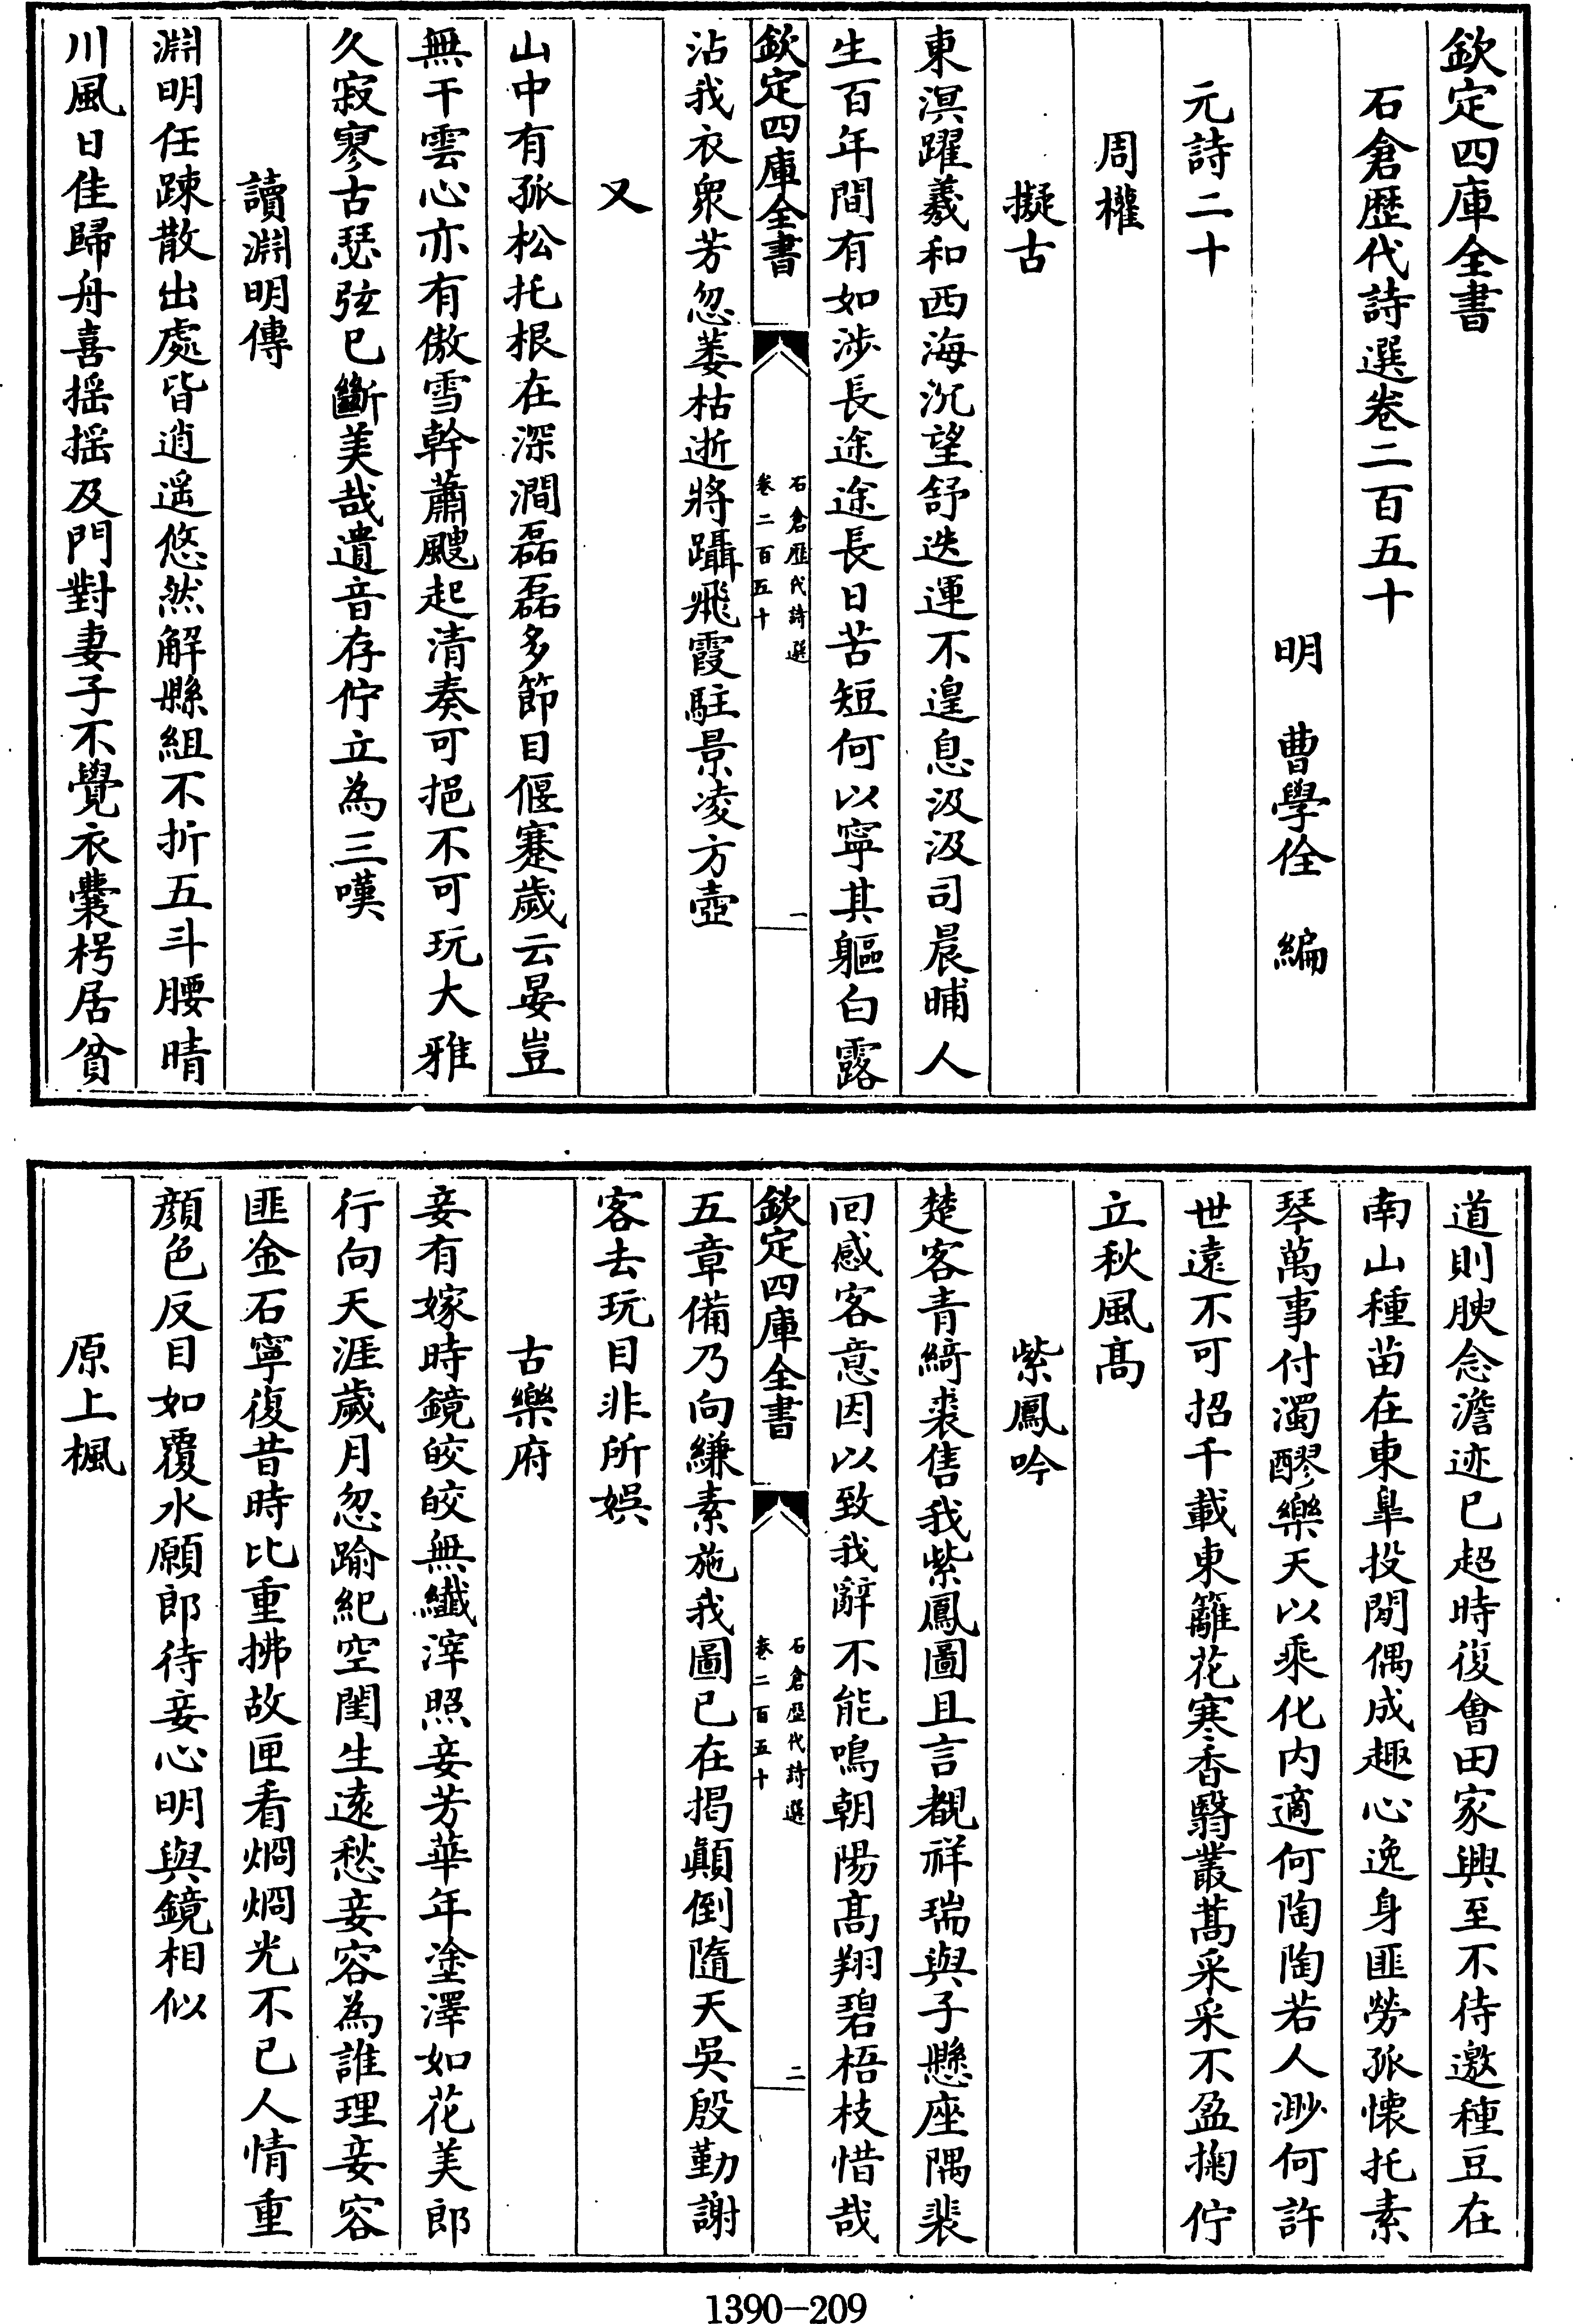 欽定四庫全書
石倉歴代詩選卷二百五十
明　曹學佺　編
元詩二十
周權
擬古
東溟躍羲和西海沉望舒迭運不遑息汲汲司晨晡人
生百年間有如涉長途途長日苦短何以寧其軀白露
欽定四庫全書
石倉歴代詩選
卷二百五十
一
沾我衣衆芳忽萎枯逝將躡飛霞駐景凌方壺
又
山中有孤松托根在深澗磊磊多節目偃蹇歲云晏豈
無干雲心亦有傲雪幹蕭颼起清奏可挹不可玩大雅
久寂寥古瑟弦已斷美哉遺音存佇立為三嘆
讀淵明傳
淵明任踈散出處皆逍遥悠然解縣組不折五斗腰晴
川風日佳歸舟喜摇摇及門對妻子不覺衣囊枵居貧
道則腴念澹迹已超時復會田家興至不待邀種豆在
南山種苗在東臯投閒偶成趣心逸身匪勞孤懐托素
琴萬事付濁醪樂天以乘化内適何陶陶若人渺何許
世遠不可招千載東籬花寒香翳叢蒿采采不盈掬佇
立秋風髙
紫鳳吟
楚客青綺裘售我紫鳳圖且言覩祥瑞與子懸座隅裴
回感客意因以致我辭不能鳴朝陽髙翔碧梧枝惜哉
欽定四庫全書
石倉歴代詩選
卷二百五十
二
五章備乃向縑素施我圖已在掲顛倒隨天吳殷勤謝
客去玩目非所娱
古樂府
妾有嫁時鏡皎皎無纎滓照妾芳華年塗澤如花美郎
行向天涯歲月忽踰紀空閨生遠愁妾容為誰理妾容
匪金石寧復昔時比重拂故匣看烱烱光不已人情重
顔色反目如覆水願郎待妾心明與鏡相似
原上楓
1390—209